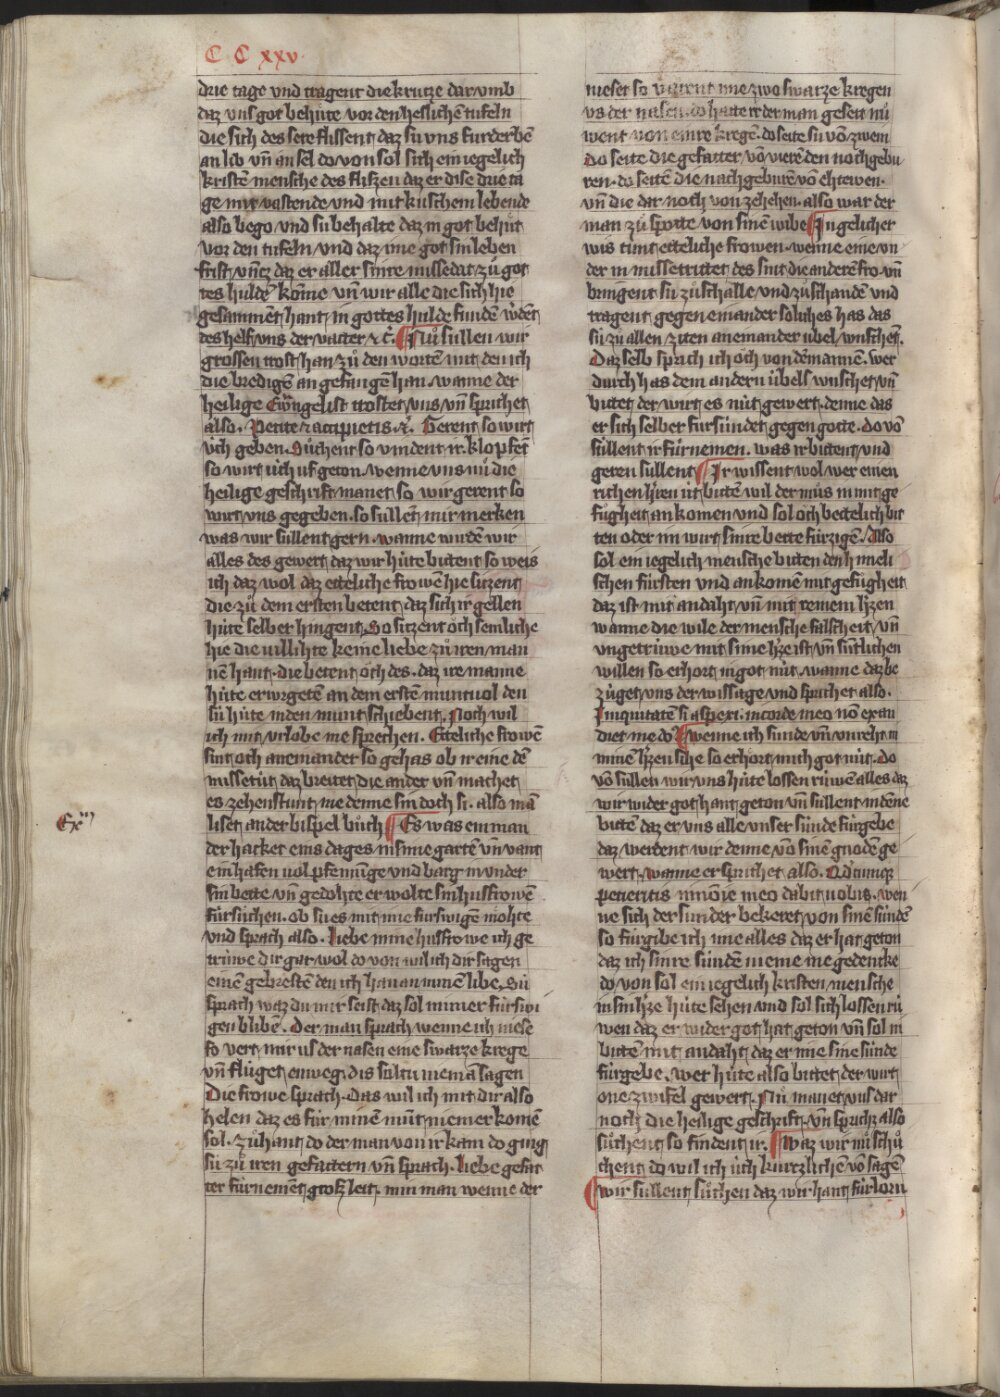 C C xxv
drie tage vnd tragent die krutze dar vmb
daz vns got behüte vor den hellichē tufeln
die sich des sere flissent daz su vns furderbē
an lib vn̄ an sel do von sol sich ein iegelich
kristē mensche des flissen daz er dise drie ta
ge mit vastende vnd mit kuschem lebende
also bego vnd su behalte daz in got behüt
vor den tufeln vnd daz ime got sin leben
frist vncz daz er aller sinre missedat zů got
tes huldē kōme vn̄ wir alle die sich hie
gesamment hant in gottes hulde fundē werdēt
des helf vns der vatter ⁊ c̄. Nů sullen wir
grossen trost han zů den wortē mit den ich
die bredige an gefangē han wanne der
heilige Ewāngelist trostet vns vn̄ sprichet
also. Petite ⁊ accipietis ⁊ c̄. Gerent so wirt
üch geben. Sůchent so vindent ir. klopfēt
so wirt üch vf geton. wenne vns nu die
heilige geschrift manet so wir gerent so
wirt vns gegeben. so sullent mir merken
was wir sullent gern. wanne wurdē wir
alles des gewert daz wir hüte bittent so weis
ich daz wol daz etteliche frowē hie sitzent
die zů dem ersten betent daz sich ir gellen
hüte selber hingent. So sitzent och semliche
hie die villihte keine liebe zů iren man
nē hant. die betent och des. daz ire manne
hüte erwrgetē an dem erstē muntuol den
sü hüte in den munt schiebent. Noch wil
ich mit vrlobe me sprechen. Etteliche frowē
sint och an einander so gehas ob ir eine dē
missetůt daz breitet die ander vn̄ machet
es zehenstunt me denne sin doch si. also mā
liset an der bispel bůch Es was ein man
der hacket eins dages in sinre gartē vn̄ vant
ein hafen uol pfenninge vnd barg in vnder
sin bette vn̄ gedohte er wolte sin husfrowē
fürsůchen. ob sü es mit nie furswigē mohte
vnd sprach also. Liebe mine husfrowe ich ge
trüwe dir gar wol do von wil ich dir sagen
einē gebresten den ich han an minē libe. Sü
sprach waz du mir seist daz sol immer fürswi
gen blibē. Der man sprach wenne ich niese
so vert mir us der nasen eine swarze krege
vn̄ flüget enweg. dis soltu niemā sagen
Die frowe sprach. Das wil ich mit dir also
helen daz es für minen munt niemer komē
sol. zůhant do der man von ir kam do ging
sü zů iren gefattern vn̄ sprach. Liebe gefat
ter fürnement groz leit. min man wenne der
Ex̄
nieset so varent ime zwo swarze kregen
vs der nasen. do hatte ir der man geseit nů
went von einre kregē. do seite sü vō zwein
Do seite die gefatter vō vieren den nochgebu
ren. do seitē die nachgeburē vō ehtewen.
vn̄ die dar noch von zehehen. also war der
man zů spotte von sinē wibe In gelicher
wis tünt etteliche frowen. wenne eine vn
der in missetrittet des sint die anderē fro vn̄
bringent sü zů schalle vnd zů schanden vnd
tragent gegen einander soliches has das
sü zů allen ziten an einander übel wnschēt.
Daz selb sprich ich och von dē mannē. wer
durch has dem andern übels wnschet vn̄
bittet der wirt es nüt gewert. denne das
er sich selber fürsündet gegen gotte. do vō
süllent ir fürnemen. was ir bittent vnd
geren sullent Ir wissent wol wer einen
richen h̄ren üt bittē wil der můs in mit ge
fůgheit an komen vnd sol och bettelich bit
ten oder im wirt sinre bette fürzigē. Also
sol ein iegelich mensche bitten den himeli
schen fürsten vnd an komē mit gefůgheit
daz ist mit andaht vn̄ mit reinem h̄zen
wanne die wile der mensche falscheit vn̄
vngetrüwe mit sime h̄ze ist vn̄ süntlichen
willen so erhort in got nüt. wanne daz be
zůget vns der wissage vnd sprichet also.
Iniquitatē si aspexi. in corde meo nō exau
diet me do wenne ich sunde vn̄ vnreht in
minē h̄zen sihe so erhört mich got nüt. Do
vō süllen wir vns hüte lossen rüwē alles daz
wir wider got hant geton vn̄ sullent in dēne
bittē daz er vns alle vnser sünde fürgebe
daz werdent wir denne vō sinē gnodē ge
wert. wanne er sprichet also. Qdcumqꝫ
petieritis in noīe meo dabit uobis. wen
ne sich der sunder bekeret von sinē sündē
so fürgibe ich ime alles daz er hat geton
daz ich sinre sündē nieme me gedencke
do von sol ein iegelich kristen mensche
in sin h̄ze hüte sehen vnd sol sich lossen rü
wen daz er wider got hat geton vn̄ sol in
bittē mit andaht daz er ime sine sünde
fürgebe. wer hüte also bittet der wirt
one zwifel gewert. Nů manet vns dar
noch die heilige geschrift vn̄ sprichꝫ also
sůchent so findent ir. Waz wir nu schů
chent do wil ich üch kürtzlichen vō sagē
wir sullent sůchen daz wir hant fürlorn